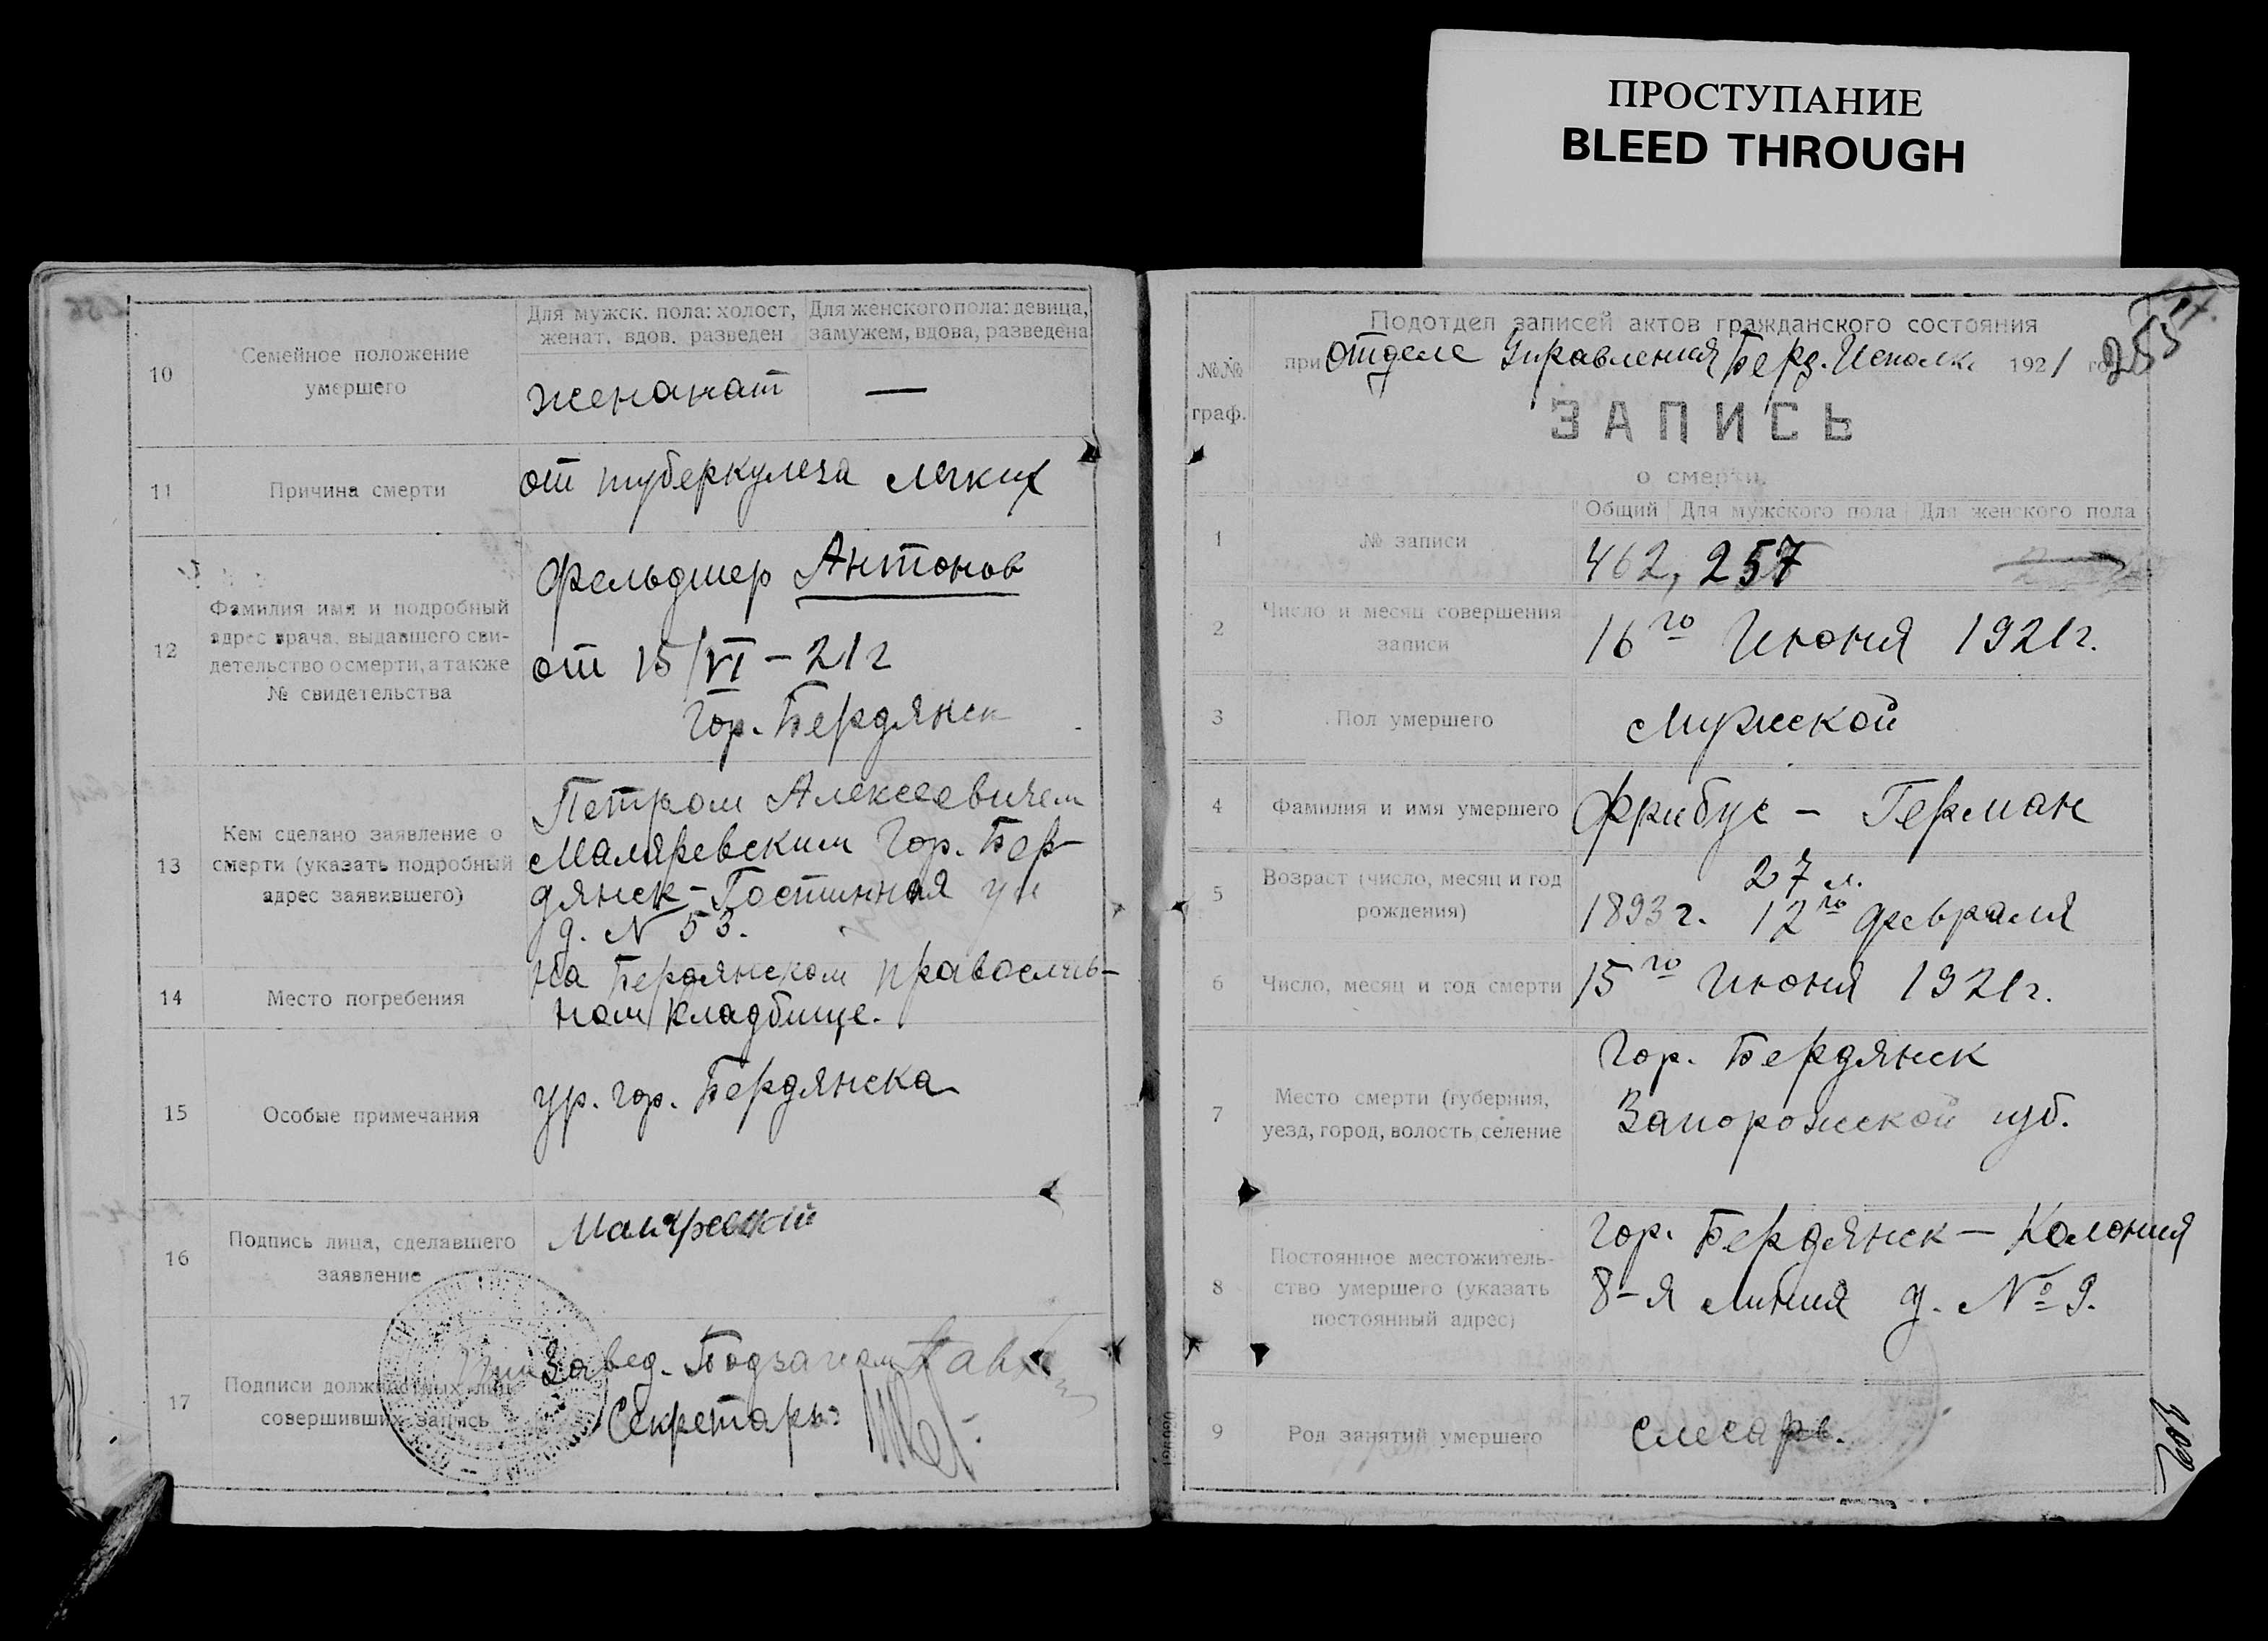 ПРОСТУПАНИЕ
BLEED THROUGH
10
Семейное положение
умершего
Для мужск. пола: холост,
женат, вдов. разведен
Для женского пола: девица,
замужем, вдова, разведена
женанат
—
11
Причина смерти
от туберкулеза легких
12
Фамилия имя и подробный
адрес врача, выдавшего сви-
детельство о смерти, а также
№ свидетельства
фельдшер Антонов
от 15/VI – 21 г
Гор. Бердянск
13
Кем сделано заявление о
смерти (указать подробный
адрес заявившего)
Петром Алексеевичем
Маляревским Гор. Бер-
дянск – Гостинная ул
д. N 53.
14
Место погребения
На Бердянском православ-
ном кладбище.
15
Особые примечания
ур. гор. Бердянска
16
Подпись лица, сделавшего
заявление
Маляревский
17
Подписи должностных лиц
совершивших запись
Завед. Подзагсом
Секретарь:
№№
граф.
Подотдел записей актов гражданского состояния
при Отделе Управления Берд. Исполк. 1921 го
255
ЗАПИСЬ
о смерти.
1
№ записи
Общий Для мужского пола Для женского пола
462, 257
2
Число и месяц совершения
записи
16го Июня 1921 г.
3
Пол умершего
Мужской
4
Фамилия и имя умершего
Фрибус – Герман
5
Возраст (число, месяц и год
рождения)
27 л.
1893 г. 12го февраля
6
Число, месяц и год смерти
15го Июня 1921 г.
7
Место смерти (губерния,
уезд, город, волость, селение
Гор. Бердянск
Запорожской губ.
8
Постоянное местожитель-
ство умершего (указать
постоянный адрес)
Гор. Бердянск – Колония
8-я линия д. № 9.
9
Род занятий умершего
слесарь.